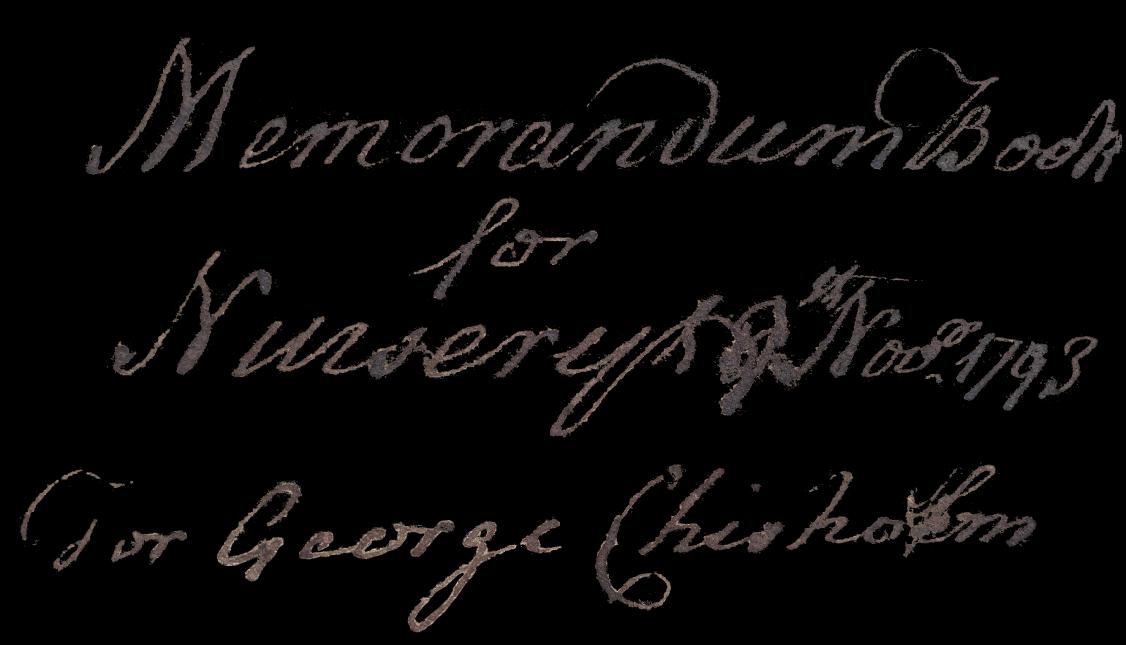 Memorandum Book
for
Nursery 9th Novr 1793
For George Chisholm